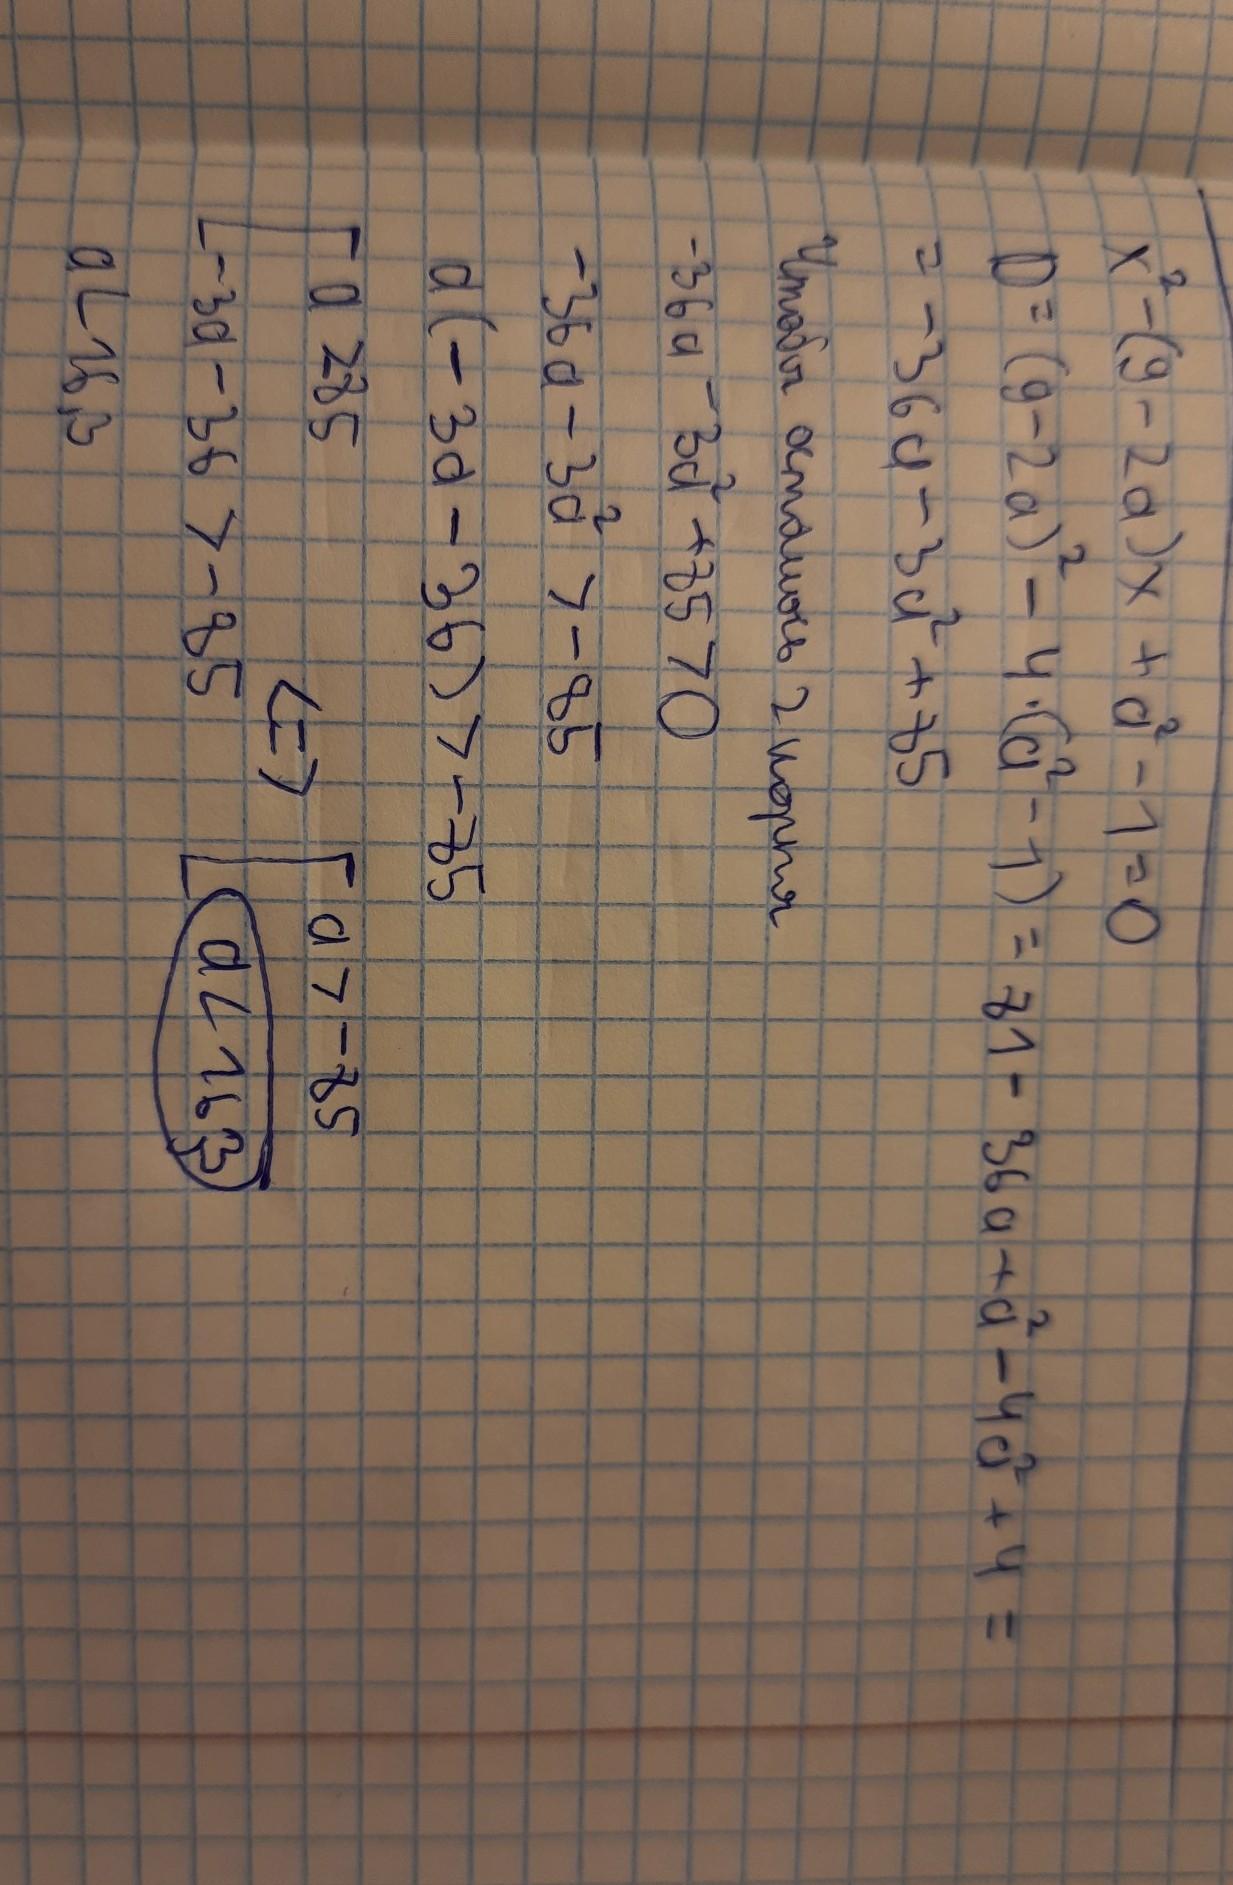 x² - (9 - 2a)x + a² - 1 = 0
D = (9 - 2a)² - 4·(a² - 1) = 81 - 36a + a² - 4a² + 4 =
= -36a - 3a² + 85
Чтобы осталось 2 корня
-36a - 3a² + 85 > 0
-36a - 3a² > -85
a(-3a - 36) > -85
[ a > 85
<=> [ a > -85
[ -3a - 36 > -85
a < 16,3
a < 16,3